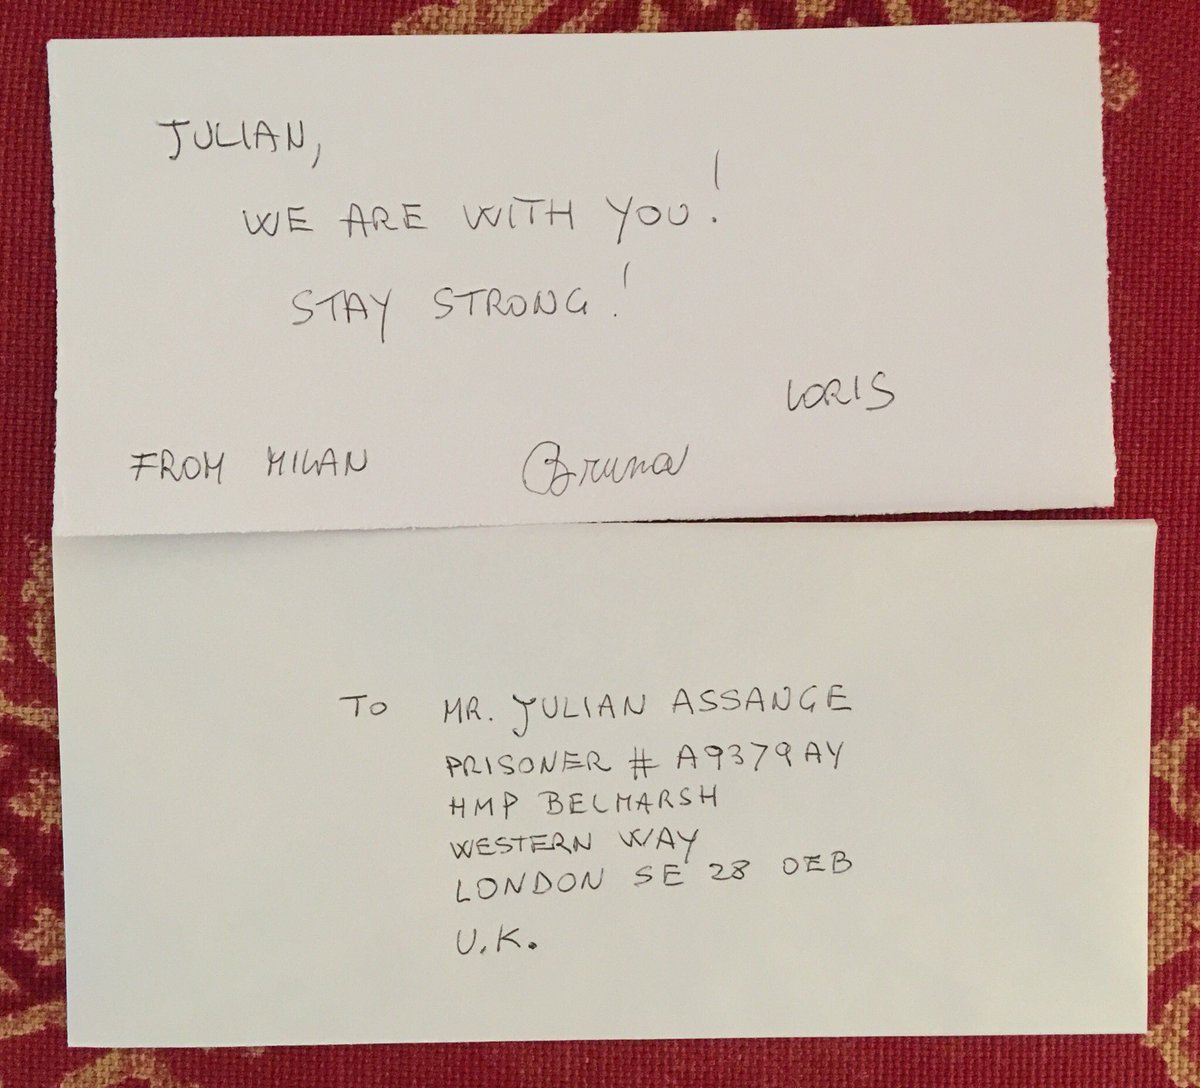 JULIAN,
WE ARE WITH YOU!
STAY STRONG!
LORIS
FROM MILAN Bruna
TO MR. JULIAN ASSANGE
PRISONER # A9379AY
HMP BELMARSH
WESTERN WAY
LONDON SE 28 0EB
U.K.